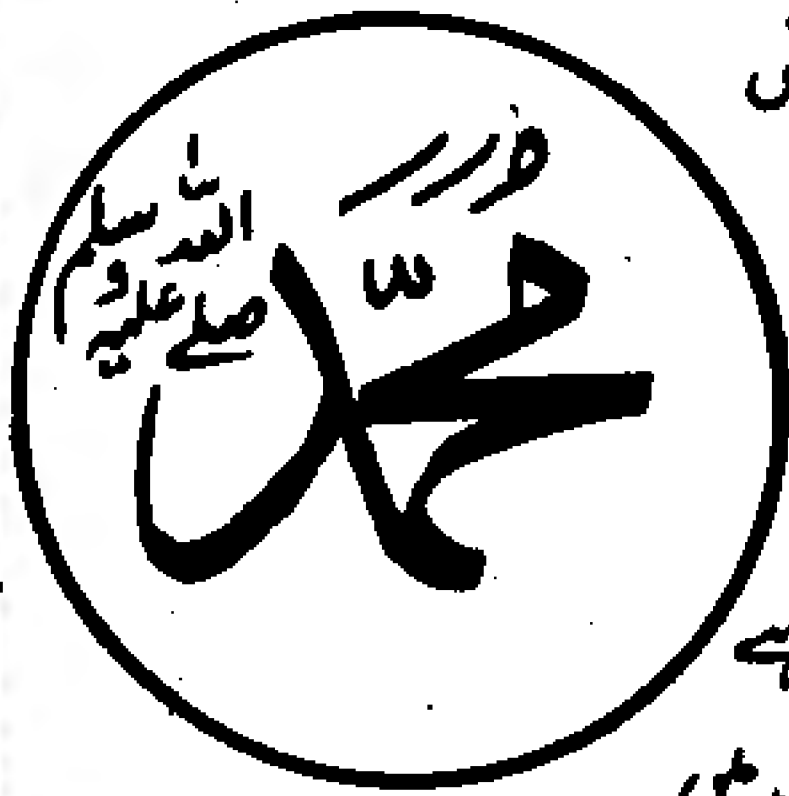 محمّد
صلے اللہ علیہ وسلم